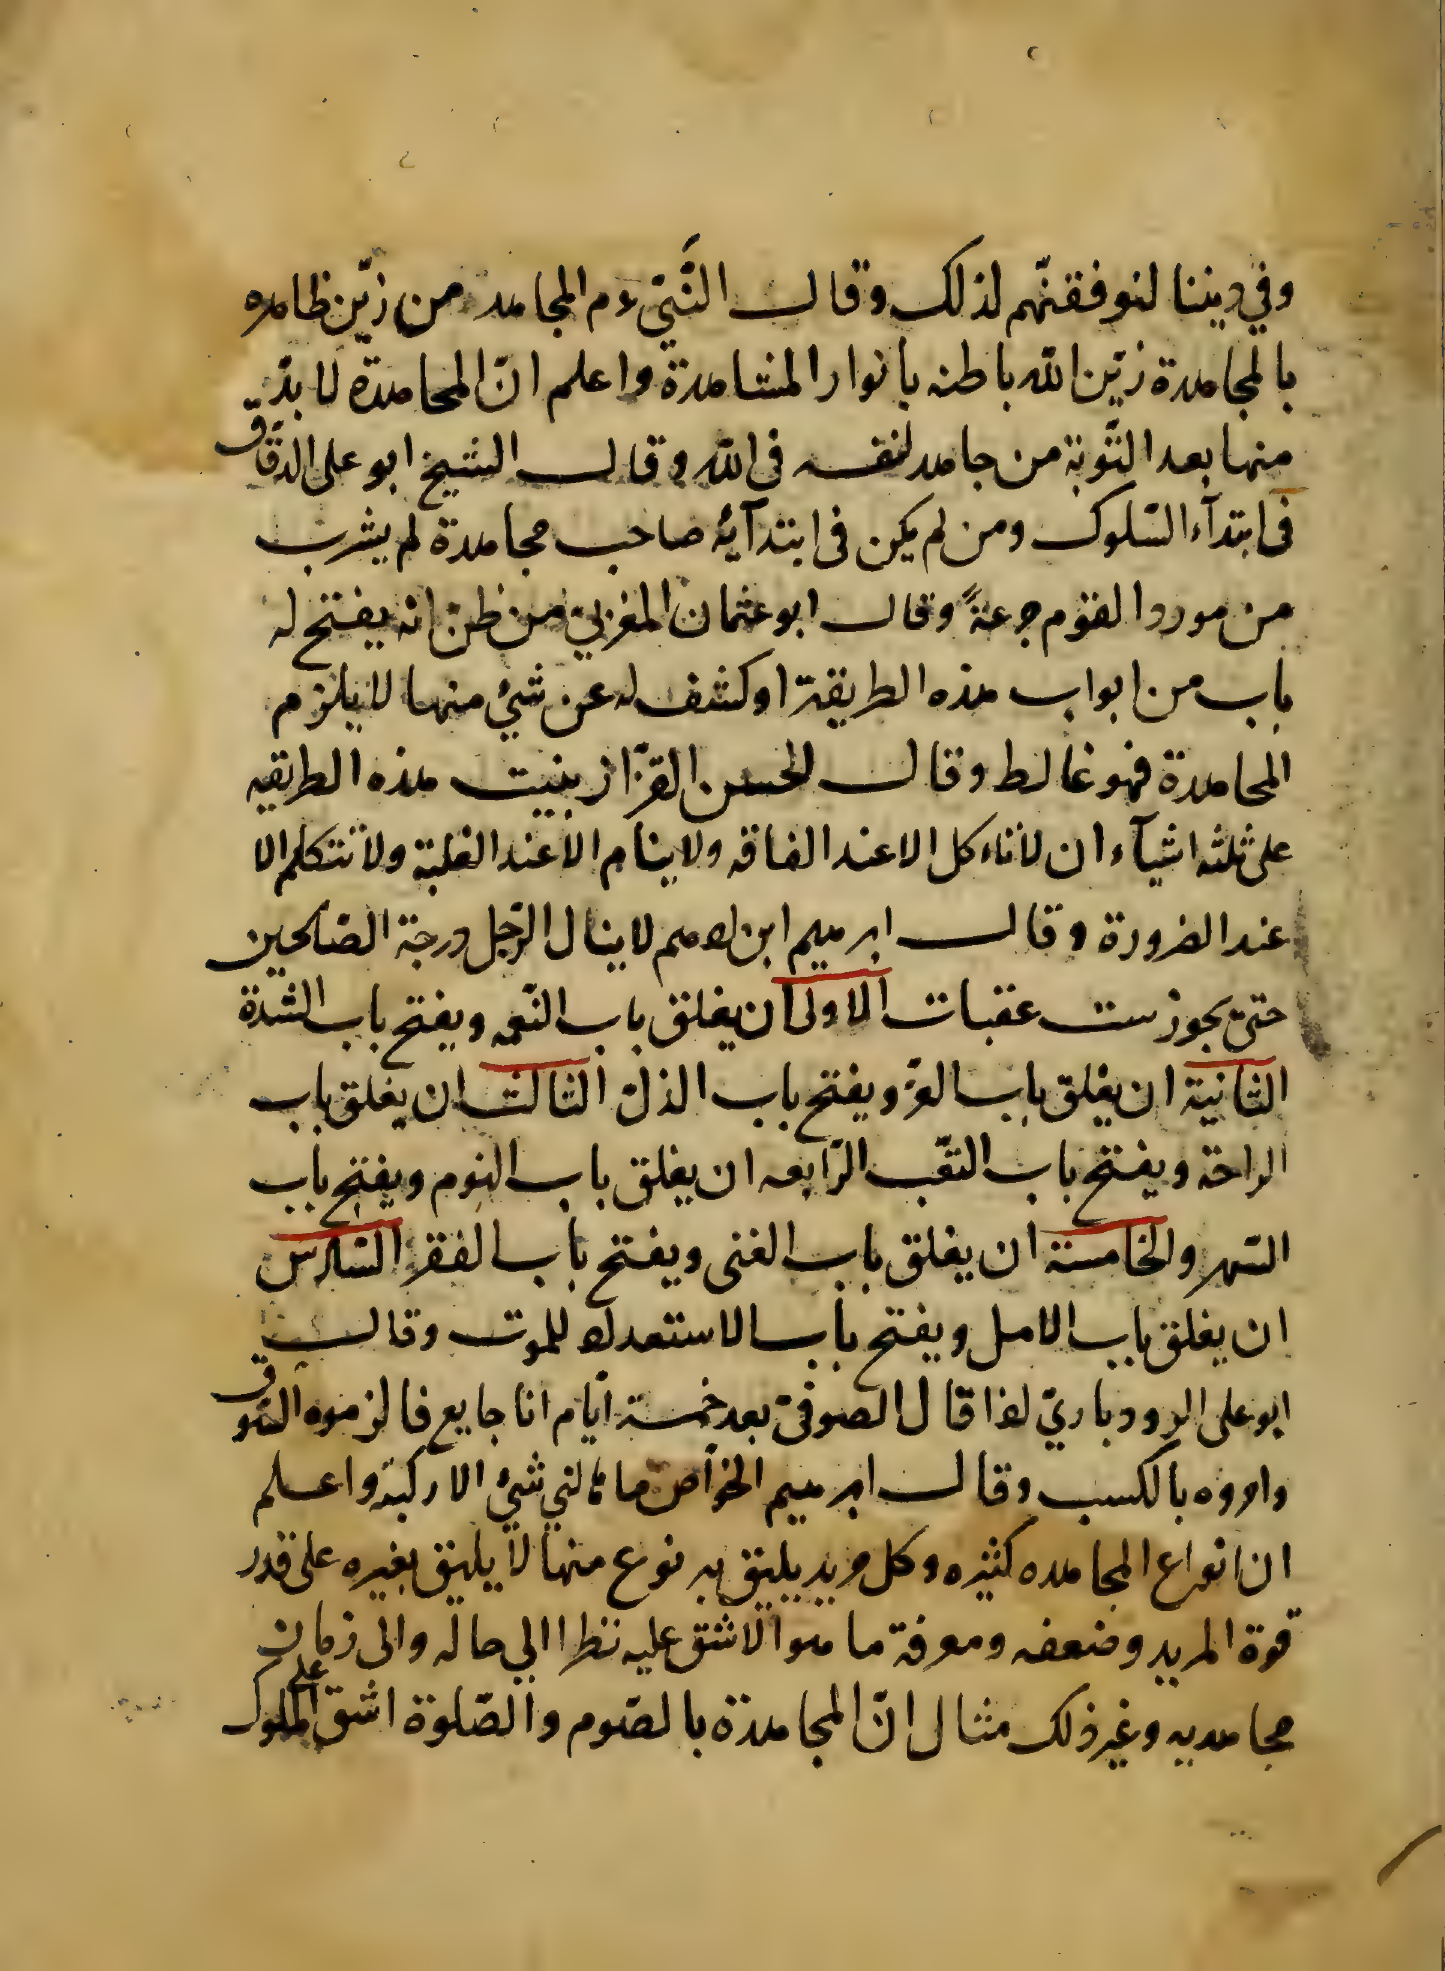 وفي ديننا لنوفقنّهم لذلك وقال النَّبيّ ءم المجاهد من زيّن ظاهره
بالمجاهدة زيّن اللّه باطنه بانوار المشاهدة واعلم انّ المجاهدة لا بدّ
منها بعد التّوبة من جاهد لنفسه فى اللّه وقال الشيخ ابو على الدقّاق
فى ابتدآء السّلوك ومن لم يكن فى ابتدآئه صاحب مجاهدة لم يشرب
من مورد القوم جرعةً وقال ابو عثمان المغربيّ من ظن انه يفتح له
باب من ابواب هذه الطريقة او كشف له عن شيئ منها لا يلزم
المجاهدة فهو غالط وقال الحسن القزّاز بنيت هذه الطريقه
على ثلثه اشيآء ان لا تاءكل الا عند الفاقه ولا ينام الا عند الغلبة ولا تتكلم الا
عند الضرورة وقال ابرهيم ابن ادهم لا ينال الرّجل درجة الصّالحين
حتىّ يجوز ست عقبات الاولى ان يغلق باب النّعمه ويفتح باب الشّدة
الثانية ان يغلق باب العزّ ويفتح باب الذلّ الثالث ان يغلق باب
الراحة ويفتح باب التعّب الرّابعه ان يغلق باب النوم ويفتح باب
السّهر والخامسة ان يغلق باب الغنى ويفتح باب الفقر السّادس
ان يغلق باب الامل ويفتح باب الاستعداد للموت وقال
ابو على الرودباريّ اذا قال الصوفىّ بعد خمسة ايّام انا جايع فالزموه السّوق
وامروه بالكسب وقال ابرهيم الخوّاص ما هالني شيئ الا ركبته واعلم
ان انواع المجاهده كثيره وكل مريد يليق به نوع منها لا يليق بغيره على قدر
قوة المريد وضعفه ومعرفة ما هو الاشق عليه نظرا الي حاله والى زمان
مجاهديه وغير ذلك مثال انّ المجاهدة بالصّوم والصّلوة اشق على الملوك